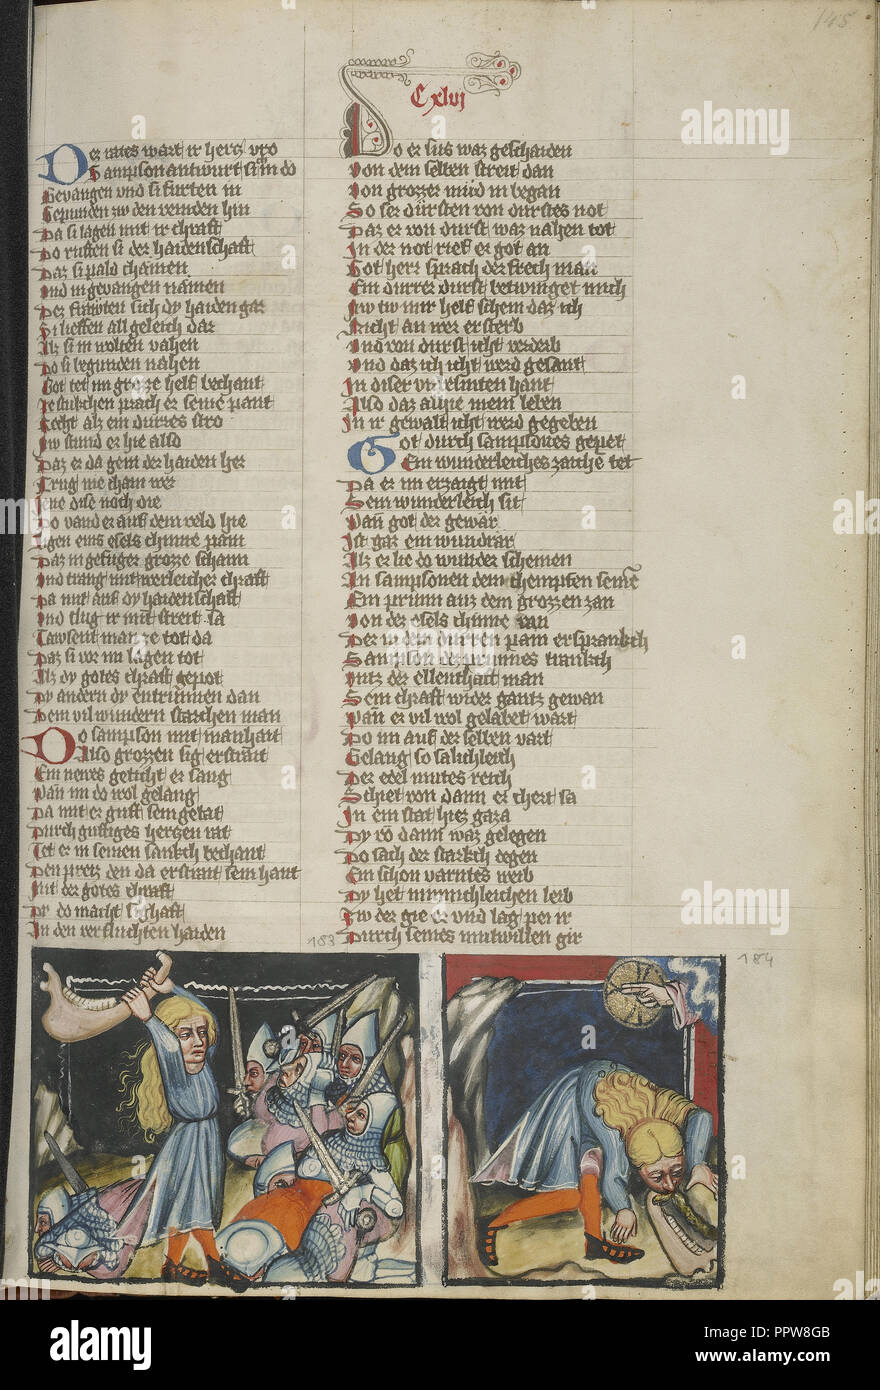 145
Cxlvj
Der rates wart ir hertz vro
Sampson antwurt si in do
Gevangen vnd si furten in
Gepunden zw den veinden hin
Da si lagen mit ir chraft
Do rufften si der haidenschaft
Daz si pald chamen
Vnd in gevangen namen
Der frawten sich dy haiden gar
Si lieffen all geleich dar
Alz si in wolten vahen
Do si begunden nahen
Got tet im grozze helf bechant
Ze stukchen prach er seine pant
Recht alz ein dürres stro
Nw stund er hie also
Daz er da gein der haiden her
Trug nie chain wer
Jene dise noch die
Do vand er auf dem veld hie
Ligen eins esels chinne pain
Daz in gefuger grozze schain
Vnd trang mit werleicher chraft
Da mit auf dy haidenschaft
Vnd slug ir mit streit sa
Tawsent man ze tot da
Daz si vor im lagen tot
Alz dy gotes chraft gepot
Dy andern dy entrunnen dan
Dem vil wundern starchen man
Do sampson mit manhait
Also grozzen sig erstrait
Ein newes geticht er sang
Wan im do wol gelang
Da mit er guff sein getat
Durch guftiges hertzen rat
Tet er in seinen sankch bechant
Den preiz den da erstrait sein hant
Mit der gotes chraft
Dy do macht sighaft
In den verfluchten haiden
Do er sus waz geschaiden
Von dem selben streit dan
Von grozzer müd in began
So ser dürsten von durstes not
Daz er von durst waz nahen tot
In der not rief er got an
Got herr sprach der frech man
Ein dürrer durst betwinget mich
Nw tw mir helf schein daz ich
Nicht an wer ersterb
Vnd von durst icht verderb
Vnd daz ich icht werd gesant
In diser vnbesniten hant
Also daz alhie mein leben
In ir gewalt icht werd gegeben
Got durch sampsones gepet
Ein wunderleiches zaichen tet
Da er im erzaigt mit
Sein wunderleich sit
Wan got der gewär
Ist gar ein wundrär
Alz er lie do wunder scheinen
An sampsonen dem chempfen seinē
Ein prunn auz dem grozzen zan
Von der esels chinne ran
Der in dem dürren painersprankch
Sampson dez prunnes trankch
Vntz der ellenthaft man
Sein chraft wider gantz gewan
Wan er vil wol gelabet wart
Do im auf der selben vart
Gelang so sälichleich
Der edel mutes reich
Schiet von dann er chert sa
In ein stat hiez gaza
Dy vō dann waz gelegen
Do sach der starkch degen
Ein schon varntes weib
Dy het minnichleichen leib
Zw der gie er vnd lag pei ir
Durch seines mutwillen gir
183
184
alamy
Image ID: PPW8GB
www.alamy.com